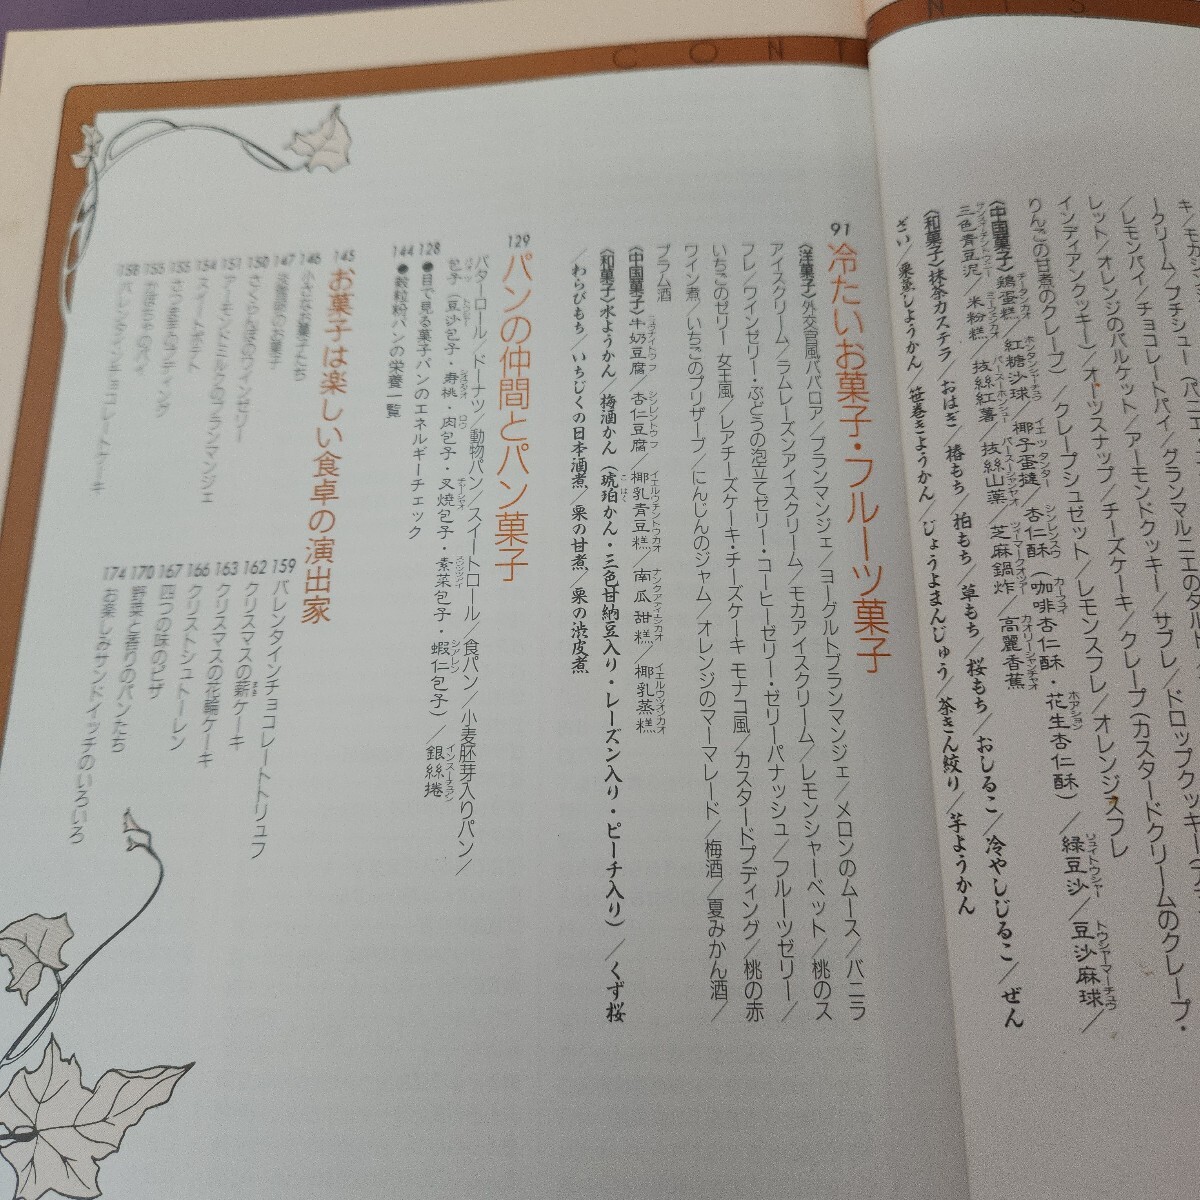 CONTENTS
キ／モカシュー
ークリーム／プチシュー
／レモンパイ／チョコレートパイ／グランマルニエのタルト
レット／オレンジのパルケット／アーモンドクッキー／サブレ／ドロップクッキー
インディアンクッキー）オーツスナップ／チーズケーキ／クレープ（カスタードクリームのクレープ・
りんごの甘煮のクレープ）／クレープシュゼット／レモンスフレ／オレンジスフレ
〈中国菓子〉鶏蛋糕／紅糖沙球／椰子蛋撻／杏仁酥（咖啡杏仁酥・花生杏仁酥）／緑豆沙／豆沙麻球／
三色青豆泥／米粉糕／抜絲紅薯／抜絲山薬／芝麻鍋炸／高麗香蕉
〈和菓子〉抹茶カステラ／おはぎ／椿もち／柏もち／草もち／桜もち／おしるこ／冷やしじるこ／ぜん
ざい／栗蒸しようかん／笹巻きようかん／じょうよまんじゅう／茶きん絞り／芋ようかん
91 冷たいお菓子・フルーツ菓子
〈洋菓子〉外交官風ババロア／ブランマンジェ／ヨーグルトブランマンジェ／メロンのムース／バニラ
アイスクリーム／ラムレーズンアイスクリーム／モカアイスクリーム／レモンシャーベット／桃のス
フレ／ワインゼリー・ぶどうの泡立てゼリー・コーヒーゼリー・ゼリーパナッシュ／フルーツゼリー／
いちごのゼリー 女王風／レアチーズケーキ・チーズケーキ モナコ風／カスタードプディング／桃の赤
ワイン煮／いちごのプリザーブ／にんじんのジャム／オレンジのマーマレード／梅酒／夏みかん酒／
プラム酒
〈中国菓子〉牛奶豆腐／杏仁豆腐／椰乳青豆糕／南瓜甜糕／椰乳蒸糕
〈和菓子〉水ようかん／梅酒かん（琥珀かん・三色甘納豆入り・レーズン入り・ピーチ入り）／くず桜
／わらびもち／いちじくの日本酒煮／栗の甘煮／栗の渋皮煮
129 パンの仲間とパン菓子
バターロール／ドーナツ／動物パン／スイートロール／食パン／小麦胚芽入りパン／
包子（豆沙包子・寿桃・肉包子・叉焼包子・素菜包子・蝦仁包子）／銀絲捲
128 ●目で見る菓子パンのエネルギーチェック
144 ●穀粒粉パンの栄養一覧
145 お菓子は楽しい食卓の演出家
146 小さなお菓子たち
147
150 さくらんぼのワインゼリー
151 アーモンドミルクのブランマンジェ
154 スイートポテト
155 さつまいものプディング
155 かぼちゃのパイ
158 バレンタインチョコレートケーキ
159 バレンタインチョコレートトリュフ
162 クリスマスの薪ケーキ
163 クリスマスの花輪ケーキ
166 クリストシュトーレン
167 四つの味のピザ
170 野菜と香りのパンたち
174 お楽しみサンドイッチのいろいろ